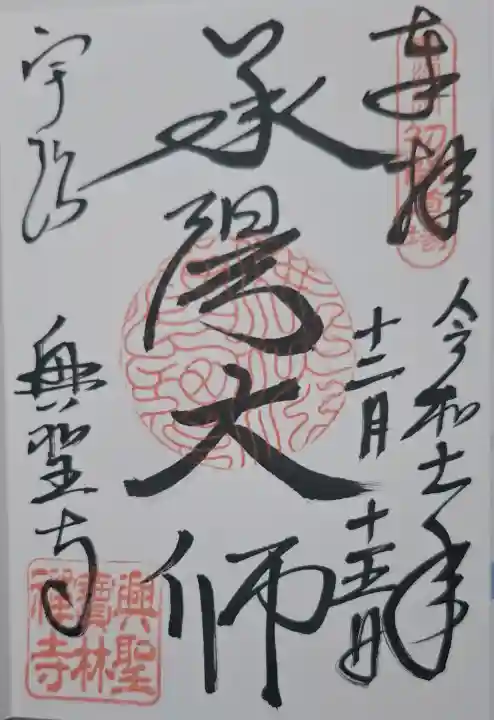 奉拝
令和年
十二月
十五日
承陽大師
宇治
興聖寺
興聖
寶林
禪寺